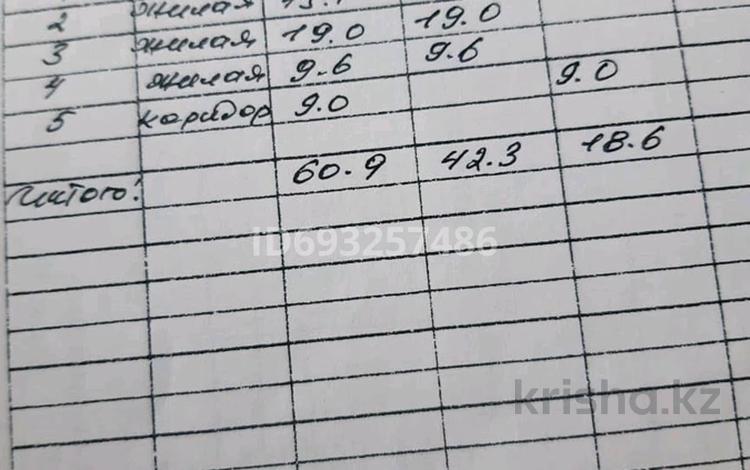 2 жилая
3 жилая 19.0 19.0
4 жилая 9.6 9.6
5 коридор 9.0 9.0
Итого: 60.9 42.3 18.6
ID693257486
krisha.kz